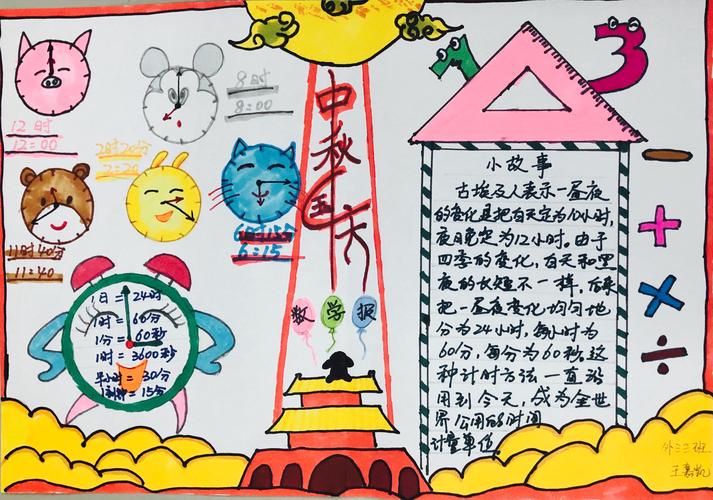 12时
12:00
8时
8:00
2时20分
2:20
11时40分
11:40
6时15分
6:15
1日=24时
1时=60分
1分=60秒
1时=3600秒
半小时=30分
1刻钟=15分
中秋国庆
数学报
小故事
古埃及人表示一昼夜
的变化是把白天定为10小时,
夜晚定为12小时。由于
四季的变化,白天和黑
夜的长短不一样。后来
把一昼夜变化均匀地
分为24小时,每小时为
60分,每分为60秒。这
种计时方法一直沿
用到今天,成为全世
界公用的时间
计量单位
7
3
−
+
×
÷
外三三班
王嘉凯